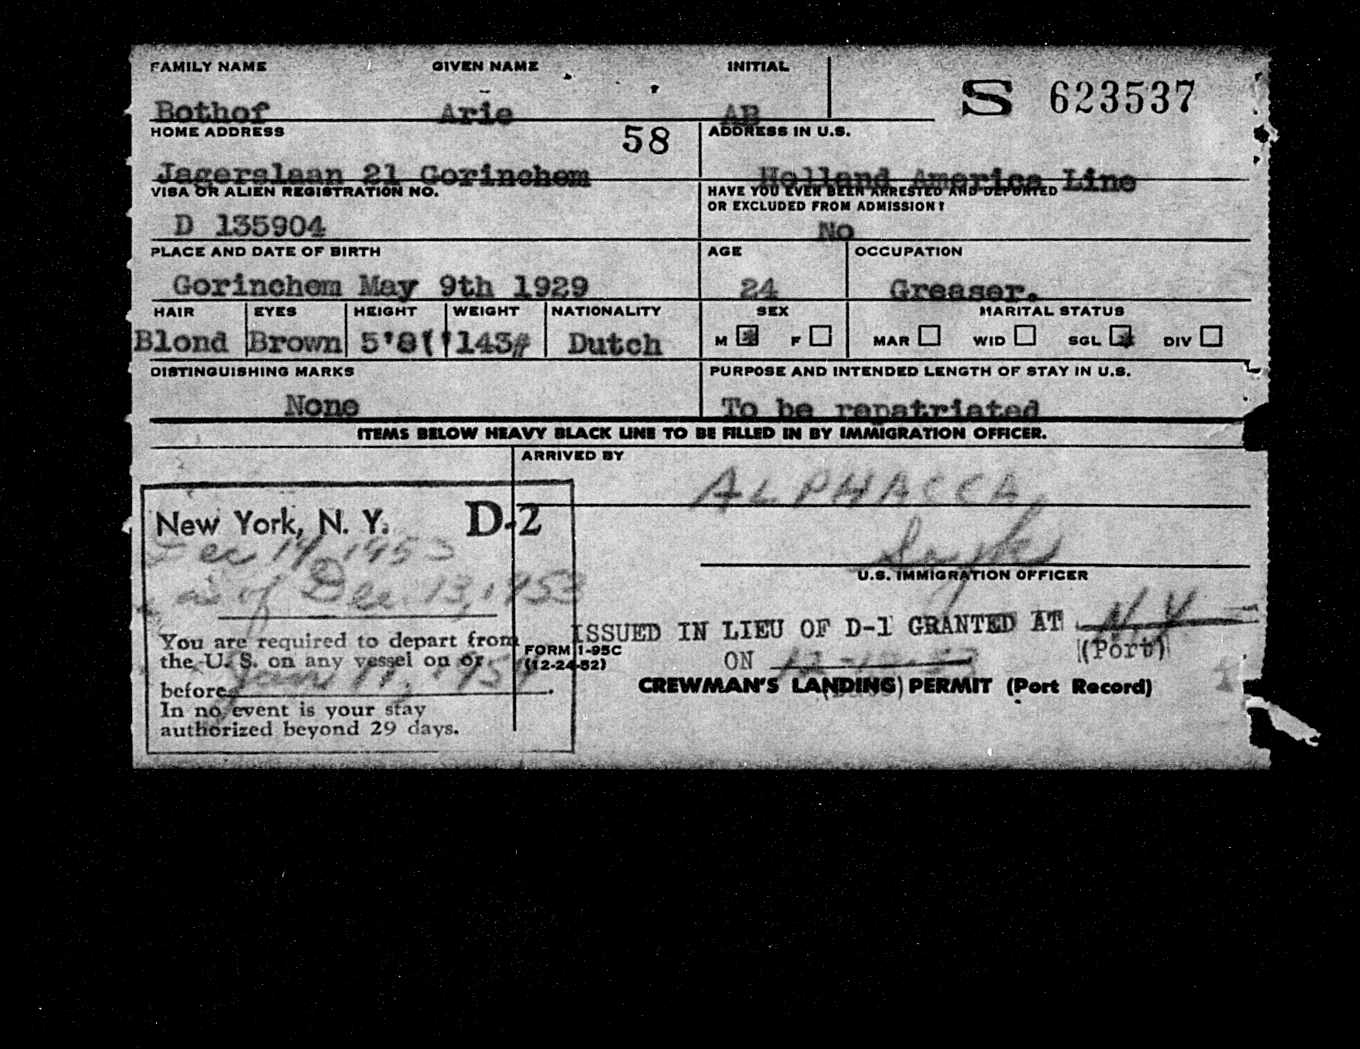 FAMILY NAME GIVEN NAME INITIAL
S 623537
Bothof Arie AB
HOME ADDRESS 58 ADDRESS IN U.S.
Jagerslaan 21 Gorinchem Holland America Line
VISA OR ALIEN REGISTRATION NO. HAVE YOU EVER BEEN ARRESTED AND DEPORTED
OR EXCLUDED FROM ADMISSION?
D 135904 No
PLACE AND DATE OF BIRTH AGE OCCUPATION
Gorinchem May 9th 1929 24 Greaser.
HAIR EYES HEIGHT WEIGHT NATIONALITY SEX MARITAL STATUS
Blond Brown 5'8" 143# Dutch M F MAR WID SGL DIV
DISTINGUISHING MARKS PURPOSE AND INTENDED LENGTH OF STAY IN U.S.
None To be repatriated
ITEMS BELOW HEAVY BLACK LINE TO BE FILLED IN BY IMMIGRATION OFFICER.
ARRIVED BY
ALPHACCA
New York, N. Y. D-2
Dec 14, 1953
as of Dec. 13, 1953
U.S. IMMIGRATION OFFICER
You are required to depart from
the U. S. on any vessel on or
before Jan 11, 1954.
In no event is your stay
authorized beyond 29 days.
ISSUED IN LIEU OF D-1 GRANTED AT N.Y
(Port)
ON
FORM I-95C
(12-24-52)
CREWMAN'S LANDING PERMIT (Port Record)